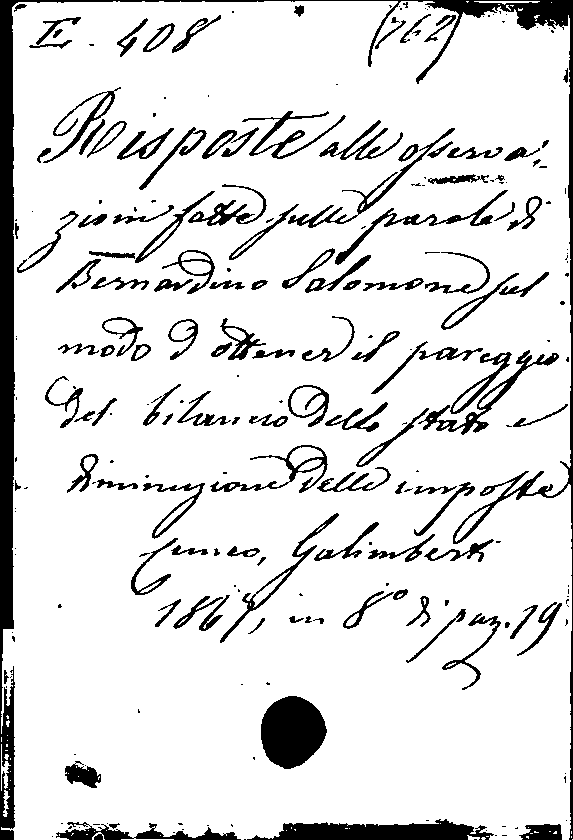 E. 408 (762)
Risposte alle osserva-
zioni fatte sulle parole di
Bernardino Salomone sul
modo d'ottener il pareggio
del bilancio dello stato e
diminuzione delle imposte
Cuneo, Galimberti
in 8° di pag. 19